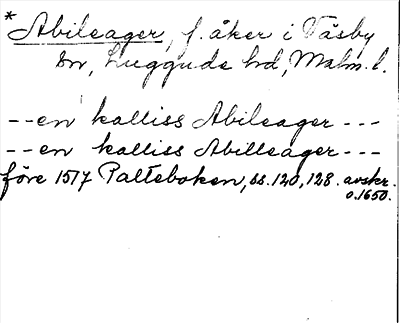 *Abilsager, f. åker i Väsby
sn, Luggude hd, Malm. l.
--en kalliss Abilsager---
--en kalliss Abillsager---
före 1517 Palteboken, ss. 120, 128. avskr.
o. 1650.